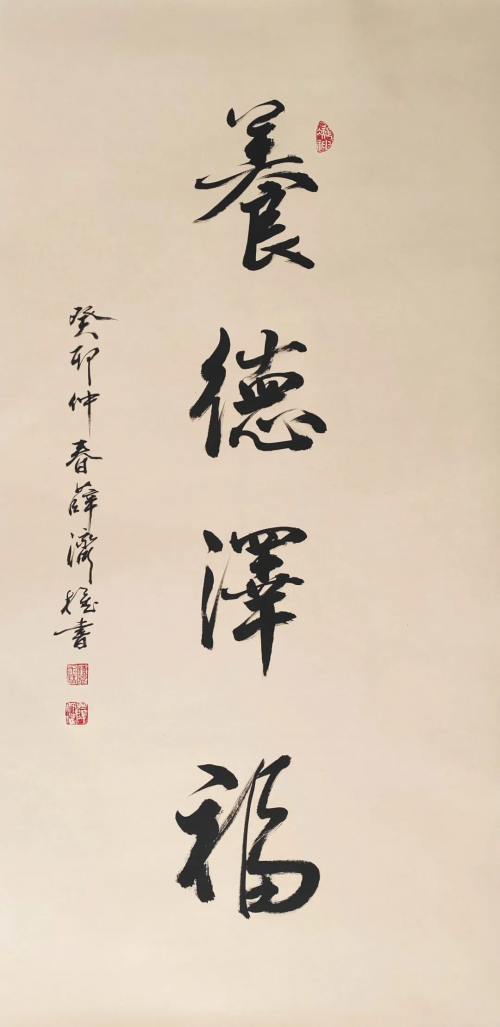 養德澤福
癸卯仲春薛濟㮋書